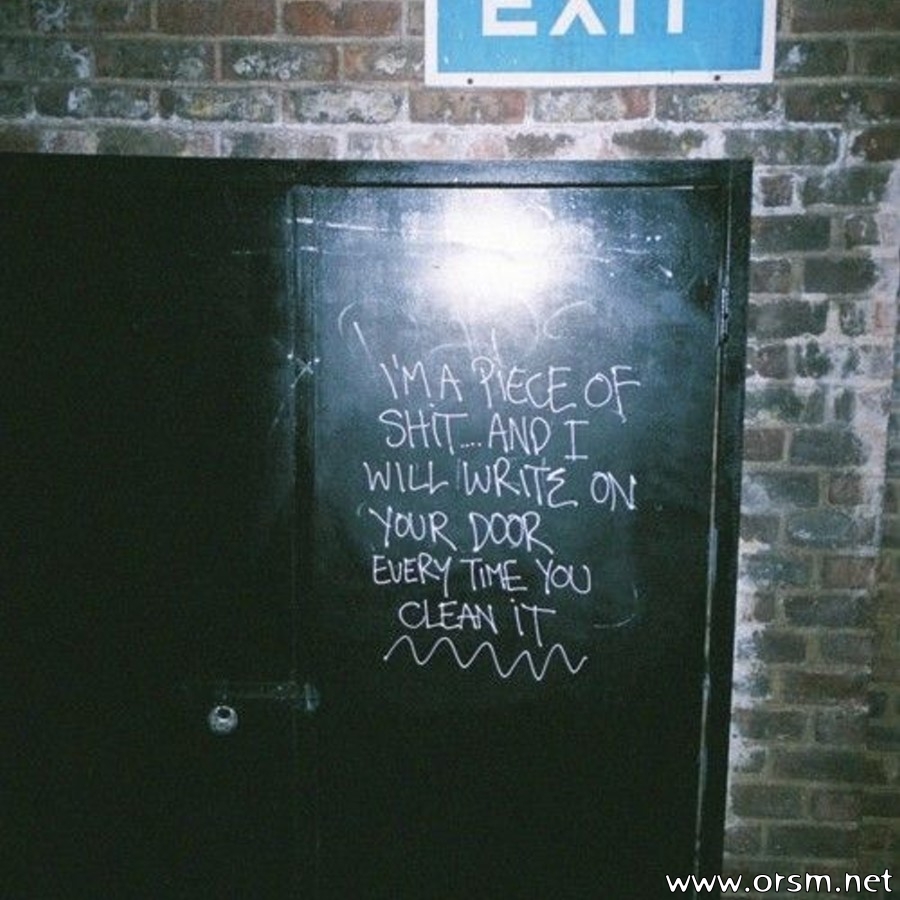 EXIT
I'M A PIECE OF
SHiT.... AND I
WILL WRITE ON
YOUR DOOR
EVERY TIME YOU
CLEAN iT
www.orsm.net